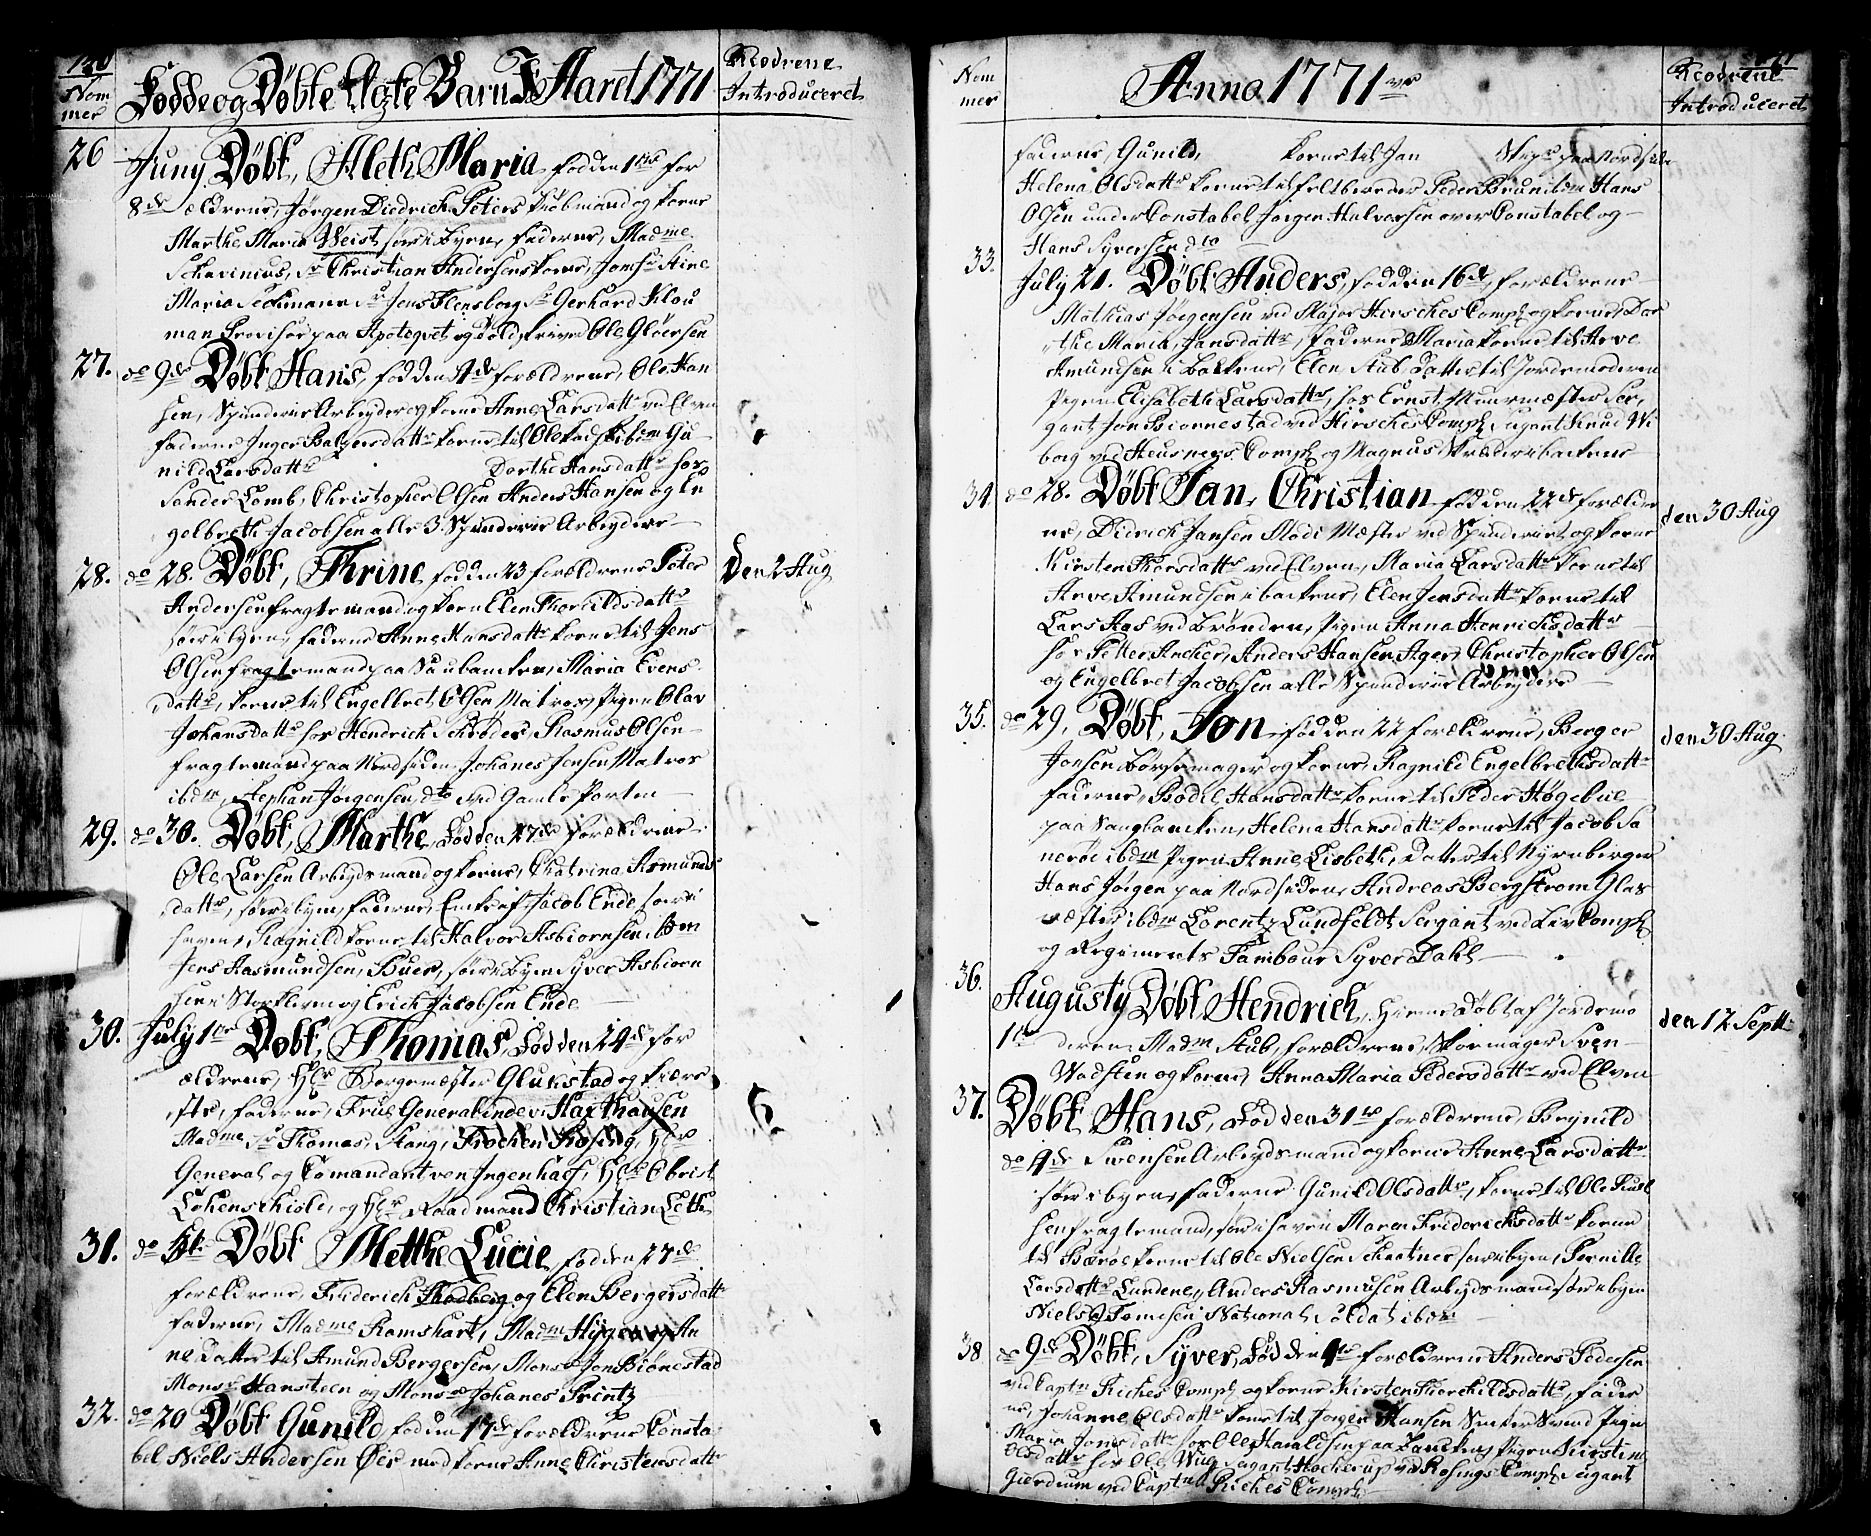 Nom
mer
Fødde og Døbte Ægte Barn I Aaret 1771
Kiodrene
Introduceret
26
Juny Døbt, Aleth Maria fød den 1ste for
8de ældrene, Jørgen Diedrich Peters kiøbmand og kone
Marthe Maria Weist, sør i byen, faderne, Madme
Schavinius, Sr Christian Andersens kone, Jomfr Aine
Maria Seckmann Sr Jens Flensborg Sr Gerhard Klou
man Provisor paa Apotequet og Told skriver Ole Gløersen
27.
do 9de Døbt Hans, fød den 4de forældrene, Ole Han
sen, Spinderie Arbeyder og kone Anne Larsdattr ved Elven
faderne Inger Baltzersdattr kone til Ole ibm Gu
nild Larsdattr Dorthe Hansdattr hos
Sander Lomb, Christopher Olsen Anders Hansen og En
gelbreth Jacobsen alle 3 Spinderie Arbeydere
28.
do 28. Døbt, Thrine, fød den 23 forældrene Peter
Andersen fragtemand og kone Elen Thorkildsdattr
sør i byen, faderne Anne Hansdattr kone til Jens
Olsen fragtemand paa Saubancken, Maria Evens
dattr, kone til Engelbret Olsen Matros, Pigen Olav
Johansdattr hos Hendrich Schrøder, Rasmus Olsen
fragtemand paa Nordsiden Johanes Jensen Matros
ibdm, Stephan Jørgensen dto ved Gamle Porten
Den 2 Aug
29.
do 30. Døbt, Marthe, Fød den 27de forældrene
Ole Larsen Arbeydsmand og kone, Chatrina Asmunds
dattr, sør i byen, faderne, Enke af Jacob Ende sør i
haven, Ragnild kone til Halvor Asbiørnsen ibm
Jens Aasmundsen, Buer, sør i byen Syver Asbiørn
sen Storkleven og Erich Jacobsen Ende
30.
July 1ste Døbt, Thomas, Fød den 24de for
ældrene, Hr Borgemester Glukstad og kiære
ste, faderne, Frue Generalinde v: Haxthausen
Madme Sr Thomas, Stang, Frøchen Rosing, Hr
General og Comandant von Ingenhaef, Hr Obrist
Løhenschiold, og Hr Raadmand Christian Leth
31.
do 5te Døbt Metthe Lucie, fød den 27de
forældrene, Friderich Thodberg og Elen Bergersdattr
faderne, Madme Ramshart, Madm Hygen og An
ne Datter til Amund Bergersen, Monsr Jon Biønestad
Monsr Hansteen og Monsr Johanes Printz
32.
do 20 Døbt Gunild, fød den 17de forældrene Consta
bel Niels Andersen Øir med kone Anne Christensdattr
Nom
mer
Anno 1771
Kiodrene
Introduceret
faderne, Gunild, kone til Jan paa Nordside
Helena Olsdattr kone til feltbereder Peder Brun ibdm Hans
Olsen under Constabel Jørgen Halvorsen over Constabel og
Hans Syversen dto
33.
July 21. Døbt Anders, fød den 16de, forældrene
Mathias Jørgensen ved Major Hirsches Comp: og kone, Dor
the Maria, Jansdattr, faderne Maria kone til Arve
Amundsen i backene, Elen Stub, datter til Jordemoderen
Pigen Elisabeth Larsdattr, hos Ernst Muurmæster Ser,
gant Jon Biornestad ved Hirsches Comp: Sergant Knud Wi
borg ved Heusners Comp: og Magnus Skræder i backene
34.
do 28. Døbt Jan, Christian, fød den 22de forældre
ne, Didrich Jansen Mæster ved Spinderiet og kone
Kirsten Thorsdattr ved Elven, Maria Larsdattr kone til
Arve Amundsen i backene, Elen Jensdattr kone til
Lars Aas ved brønden, Pigen Anna Henrichsdattr
hos Petter Ancher, Anders Hansen Ager, Christopher Olsen
og Engelbret Jacobsen alle Spinderie Arbeydere
den 30 Aug
35.
do 29, Døbt, Jon, fød den 22 forældrene, Berger
Jonsen Børsemager og kone, Ragnild Engelbrethsdattr
faderne, Bodil Hansdattr kone til Peder Høgebue
paa Saugbancken, Helena Hansdattr kone til Jacob Sa
nerøe ibdm Pigen Anne Lisbeth, Datter til Nyrnberger
Hans Jørgen paa Nordsiden, Andreas Bergstrøm Glar
mæster ibdm Lorentz Lundfeldt Sergant ved Liv Comp:
og Regiments Tambour Syver Dahl
den 30 Aug
36.
Augusty Døbt Hendrich, hiemme Døbt af Jordemo
1ste deren, Madm Stub, forældrene, Skomager Sven
Wadsten og kone, Anna Maria Pedersdattr ved Elven
den 12 Septr
37.
Døbt Hans, Fød den 31te forældrene, Brynild
do 4de Swensen Arbeydsmand og kone Anne Larsdattr
sør i byen, faderne Gunild Olsdattr, kone til Ole
sen fragtemand, sør i haven Maren Friderichsdattr kone
til Barøe kone til Ole Nielsen sør i byen, Pernille
Larsdattr Lundene, Anders Rasmusen Arbeydsmand sør i byen
Niels Tomesen National Soldat ibdm
38
do 9de Døbt, Syver, Fød den 4de forældrene Anders Pedersen
ved Captn Riches Comp: og kone Kirsten Thorkildsdattr, fader
ne, Johanne Olsdattr kone til Jørgen Hansen Svend Pigen
Maria Jonsdattr hos Ole Haraldsen paa Bancken, Pigen Kirstine
Olsdattr hos Ole Wiig Sergant Hockerup ved Rosings Comp: Sergant
Gierdrum ved Captn Riches Comp: